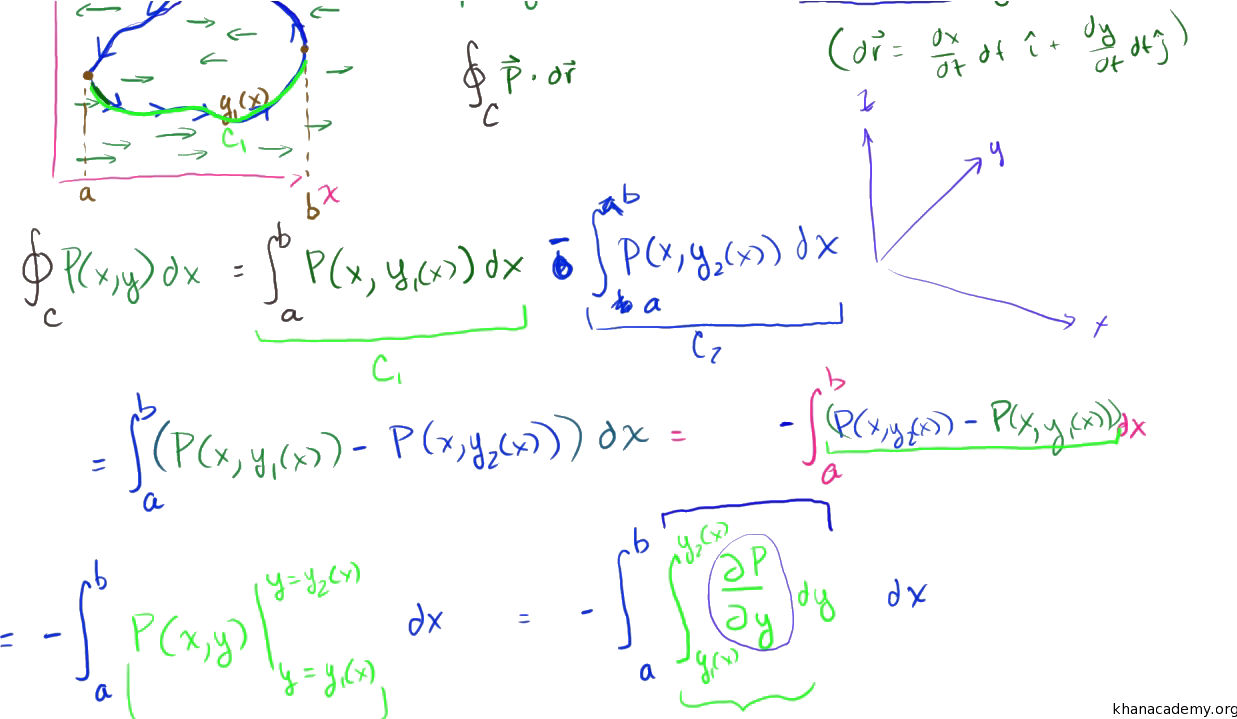 (dr⃗ = dx/dt dt î + dy/dt dt ĵ)
∮_C P⃗ · dr⃗
y₁(x)
C₁
a
b
x
z
y
x
∮_C P(x,y) dx = ∫_a^b P(x, y₁(x)) dx - ∫_a^b P(x, y₂(x)) dx
C₁
C₂
= ∫_a^b (P(x, y₁(x)) - P(x, y₂(x))) dx = - ∫_a^b (P(x, y₂(x)) - P(x, y₁(x))) dx
= - ∫_a^b P(x,y) |_{y=y₁(x)}^{y=y₂(x)} dx = - ∫_a^b ∫_{y₁(x)}^{y₂(x)} ∂P/∂y dy dx
khanacademy.org